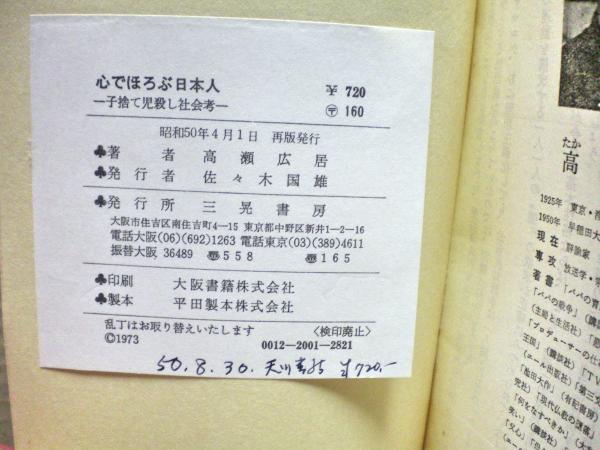 心でほろぶ日本人
720
—子捨て児殺し社会考—
〒 160
昭和50年4月1日 再版発行
♣著 者 高瀬広居
♣発行者 佐々木国雄
♣発行所 三晃書房
大阪市住吉区南住吉町4—15 東京都中野区新井1—2—16
電話大阪(06)(692)1263 電話東京(03)(389)4611
振替大阪 36489 558 165
♣印刷 大阪書籍株式会社
♣製本 平田製本株式会社
乱丁はお取り替えいたします 〈検印廃止〉
©1973 0012—2001—2821
50.8.30. 天川 ¥720.-
たか
高
1925年 東京・
1950年 早稲田大
現在 評論家
専攻 放送学・
著書 「パパの
「パパの戦争」(講談
(主婦と生活社)
「プロデューサーの仕
王国」(講談社)「TV
(エール出版社)「第三文
「池田大作」(有紀書房)
究社)「現代仏教の堕落」
「何をなすべきか」(大
笑い」(講談社)
「父心」
(エール